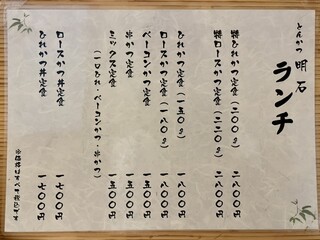 とんかつ 明石
ランチ
特ひれかつ定食(二〇〇g) 二八〇〇円
特ロースかつ定食(二二〇g) 二八〇〇円
ひれかつ定食(一五〇g) 一八〇〇円
ロースかつ定食(一八〇g) 一八〇〇円
ベーコンかつ定食 一五〇〇円
串かつ定食 一五〇〇円
ミックス定食 一五〇〇円
(一口ひれ・ベーコンかつ・串かつ)
ロースかつ丼定食 一七〇〇円
ひれかつ丼定食 一七〇〇円
※価格はすべて税込です